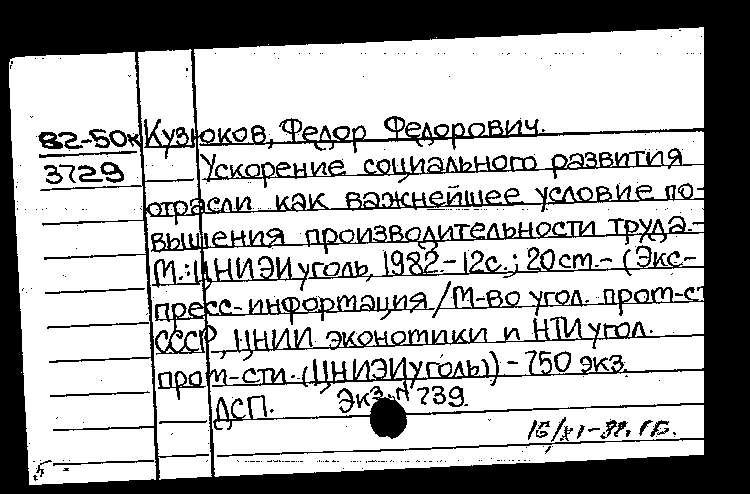 82-50к Кузюков, Федор Федорович.
3729 Ускорение социального развития
отрасли как важнейшее условие по-
вышения производительности труда.-
М.: ЦНИЭИуголь, 1982.-12с.; 20см.- (Экс-
пресс-информация/М-во угол. пром-ст
СССР, ЦНИИ экономики и НТИ угол.
пром-сти.(ЦНИЭИуголь)) - 750 экз.
ДСП. Экз. № 739.